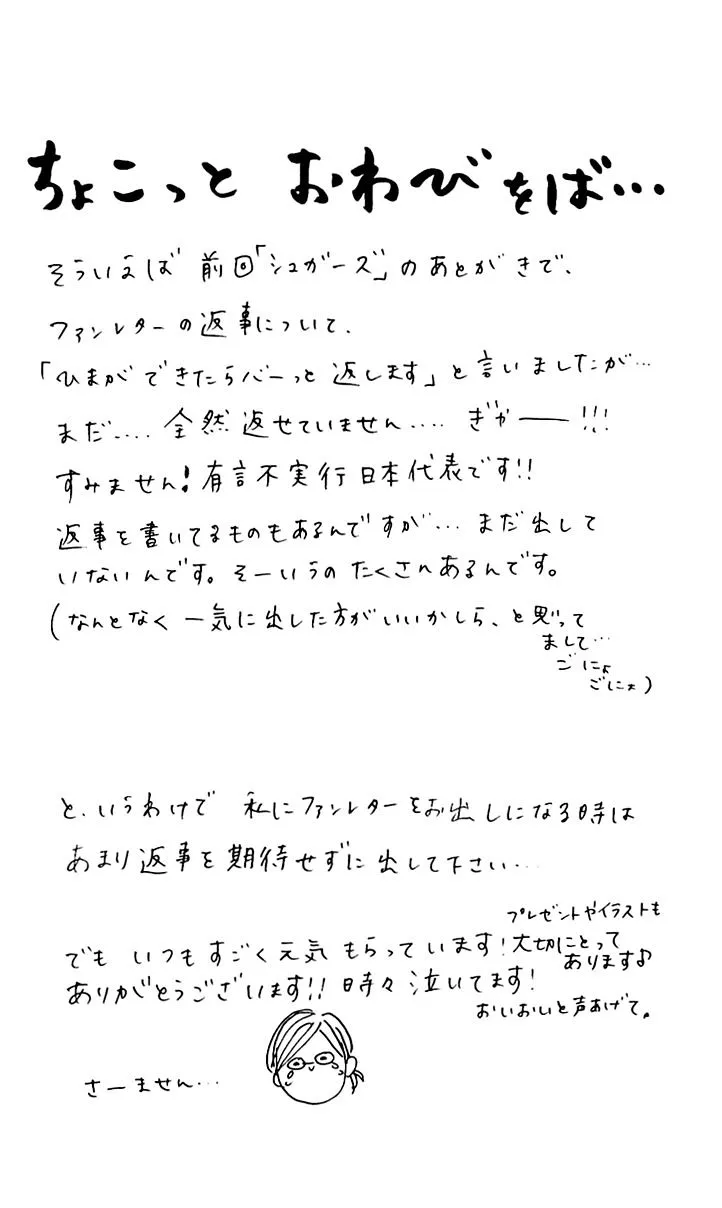 ちょこっと おわびをば…
そういえば 前回「シュガーズ」のあとがきで、
ファンレターの返事について、
「ひまができたらバーっと返します」と言いましたが…
まだ‥‥ 全然返せていません‥‥ ぎゃ――!!!
すみません!有言不実行日本代表です!!
返事を書いてるものもあるんですが… まだ出して
いないんです。そーいうのたくさんあるんです。
(なんとなく一気に出した方がいいかしら、と思って
まして…
ごにょ
ごにょ)
と、いうわけで 私にファンレターをお出しになる時は
あまり返事を期待せずに出して下さい…
でも いつもすごく元気もらっています!
プレゼントやイラストも
大切にとって
あります♪
ありがとうございます!! 時々泣いてます!
おいおいと声あげて。
さーません…